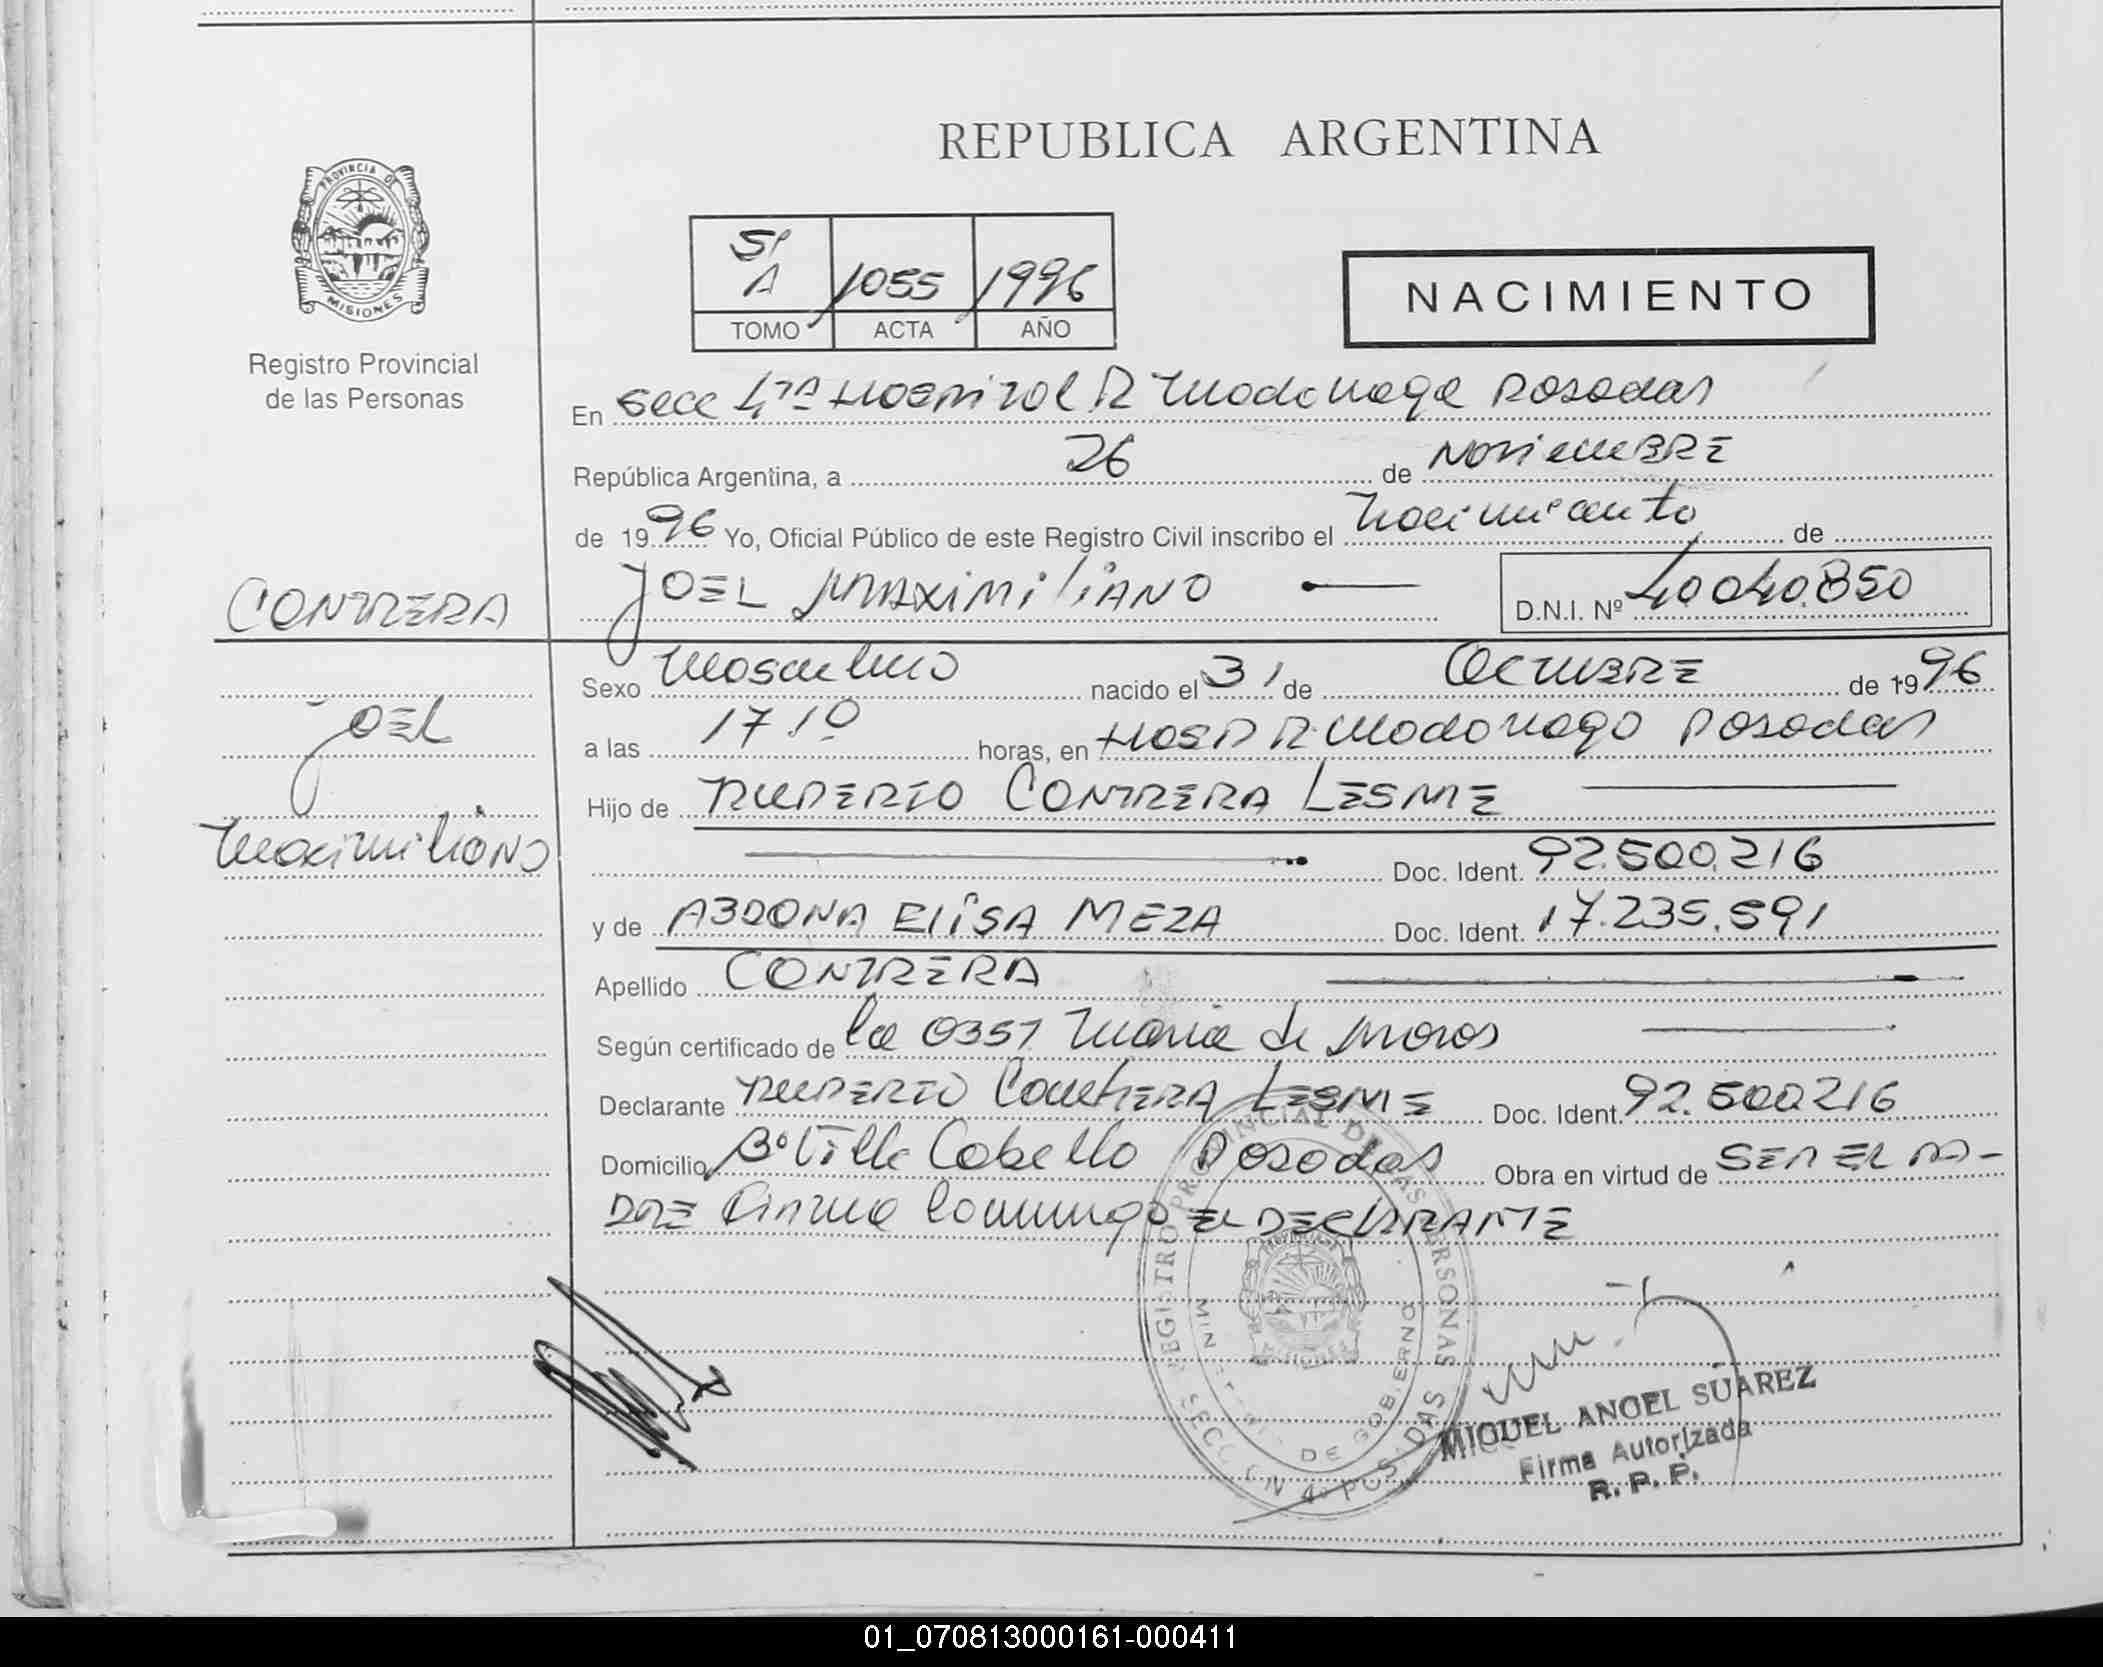 REPUBLICA ARGENTINA
PROVINCIA DE
MISIONES
Registro Provincial
de las Personas
5º
A 1055 1996
TOMO ACTA AÑO
NACIMIENTO
En Secc 4ta Hospital R Madariaga Posadas
República Argentina, a 26 de NOViemBRE
de 1996 Yo, Oficial Público de este Registro Civil inscribo el Nacimiento de
JOEL MAXIMILIANO D.N.I. Nº 40040.850
CONTRERA
JOEL
MaximiliANO
Sexo Masculino nacido el 31 de OCTUBRE de 1996
a las 17 10 horas, en HOSP R Madariaga Posadas
Hijo de RUPERTO CONTRERA LESME
Doc. Ident. 92.500.216
y de ABDONA ELISA MEZA Doc. Ident. 17.235.591
Apellido CONTRERA
Según certificado de la 0357 Maria de
Declarante RUPERTO ContRERA LESME Doc. Ident. 92.500216
Domicilio Bº Villa Cabello Posadas Obra en virtud de SER EL PA-
DRE Firma Conmigo EL DECLARANTE
REGISTRO PROVINCIAL DE LAS PERSONAS
MINISTERIO DE GOBIERNO
SECCION 4º POSADAS
MIGUEL ANGEL SUAREZ
Firma Autorizada
R. P. P.
01_070813000161-000411